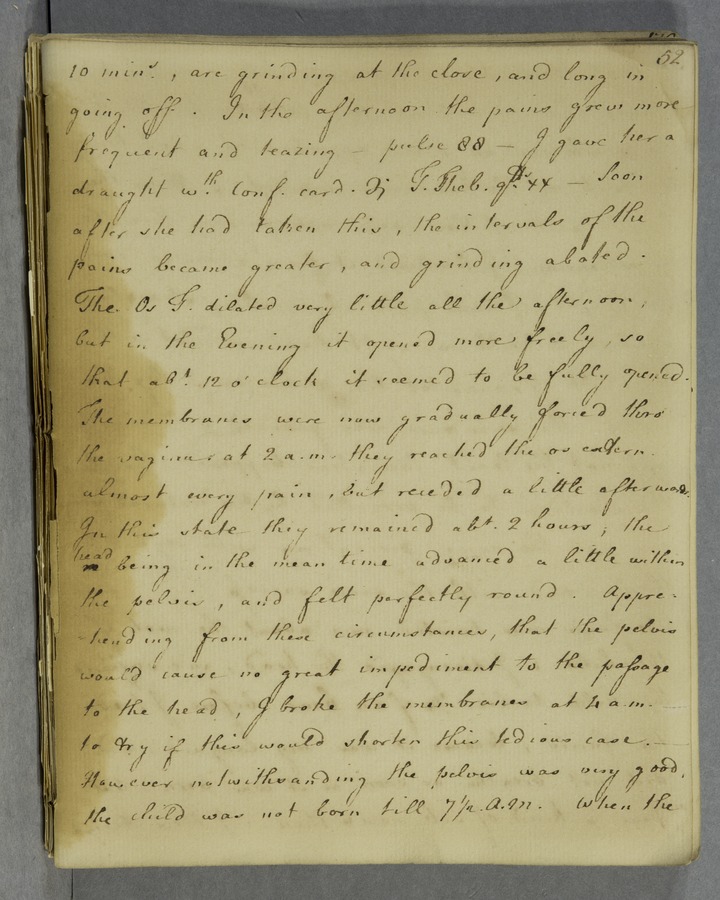 52
10 mins., are grinding at the close, and long in
going off. In the afternoon the pains grew more
frequent and teazing – pulse 88 – I gave her a
draught wth. Conf. card. ʒj T. Theb. gtts. xx – Soon
after she had taken this, the intervals of the
pains became greater, and grinding abated.
The Os T. dilated very little all the afternoon,
but in the Evening it opened more freely, so
that abt. 12 o'clock it seemed to be fully opened.
The membranes were now gradually forced thro'
the vagina & at 2 a.m. they reached the os extern.
almost every pain, but receded a little afterwards.
In this state they remained abt. 2 hours; the
head being in the mean time advanced a little within
the pelvis, and felt perfectly round. Appre=
-hending from these circumstances, that the pelvis
would cause no great impediment to the passage
to the head, I broke the membranes at 4 a.m. —
to try if this would shorten this tedious case. —
However notwithsanding the pelvis was very good,
the child was not born till 7½ A.M. When the